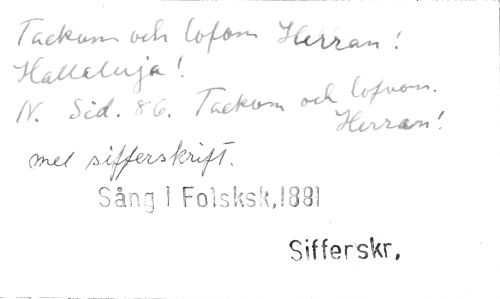 Tackom och lofom Herran!
Halleluja!
N. Sid. 86. Tackom och lofvom.
Herran!
mel sifferskrift.
Sång i Folsksk,1881
Sifferskr,